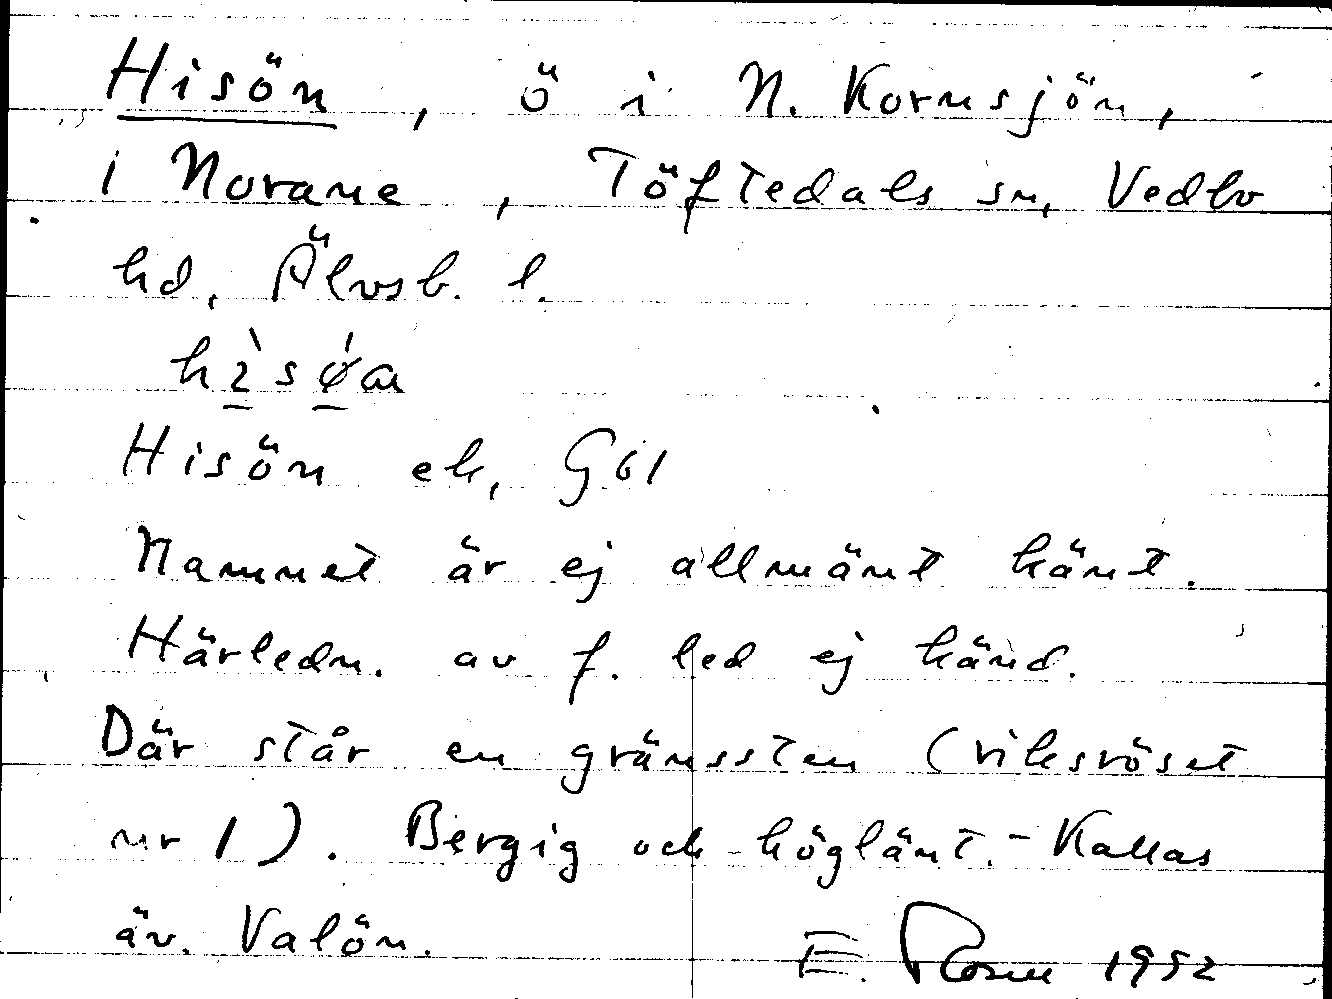 Hisön, ö i N. Kornsjön,
i Norane, Töftedals sn, Vedbo
hd, Älvsb. l.
hìsǿa
Hisön ek, G61
Namnet är ej allmänt känt.
Härledn. av f. led ej känd.
Där står en gränssten (riksröset
nr 1). Bergig och höglänt. - Kallas
äv. Valön.
E. Rosm 1952